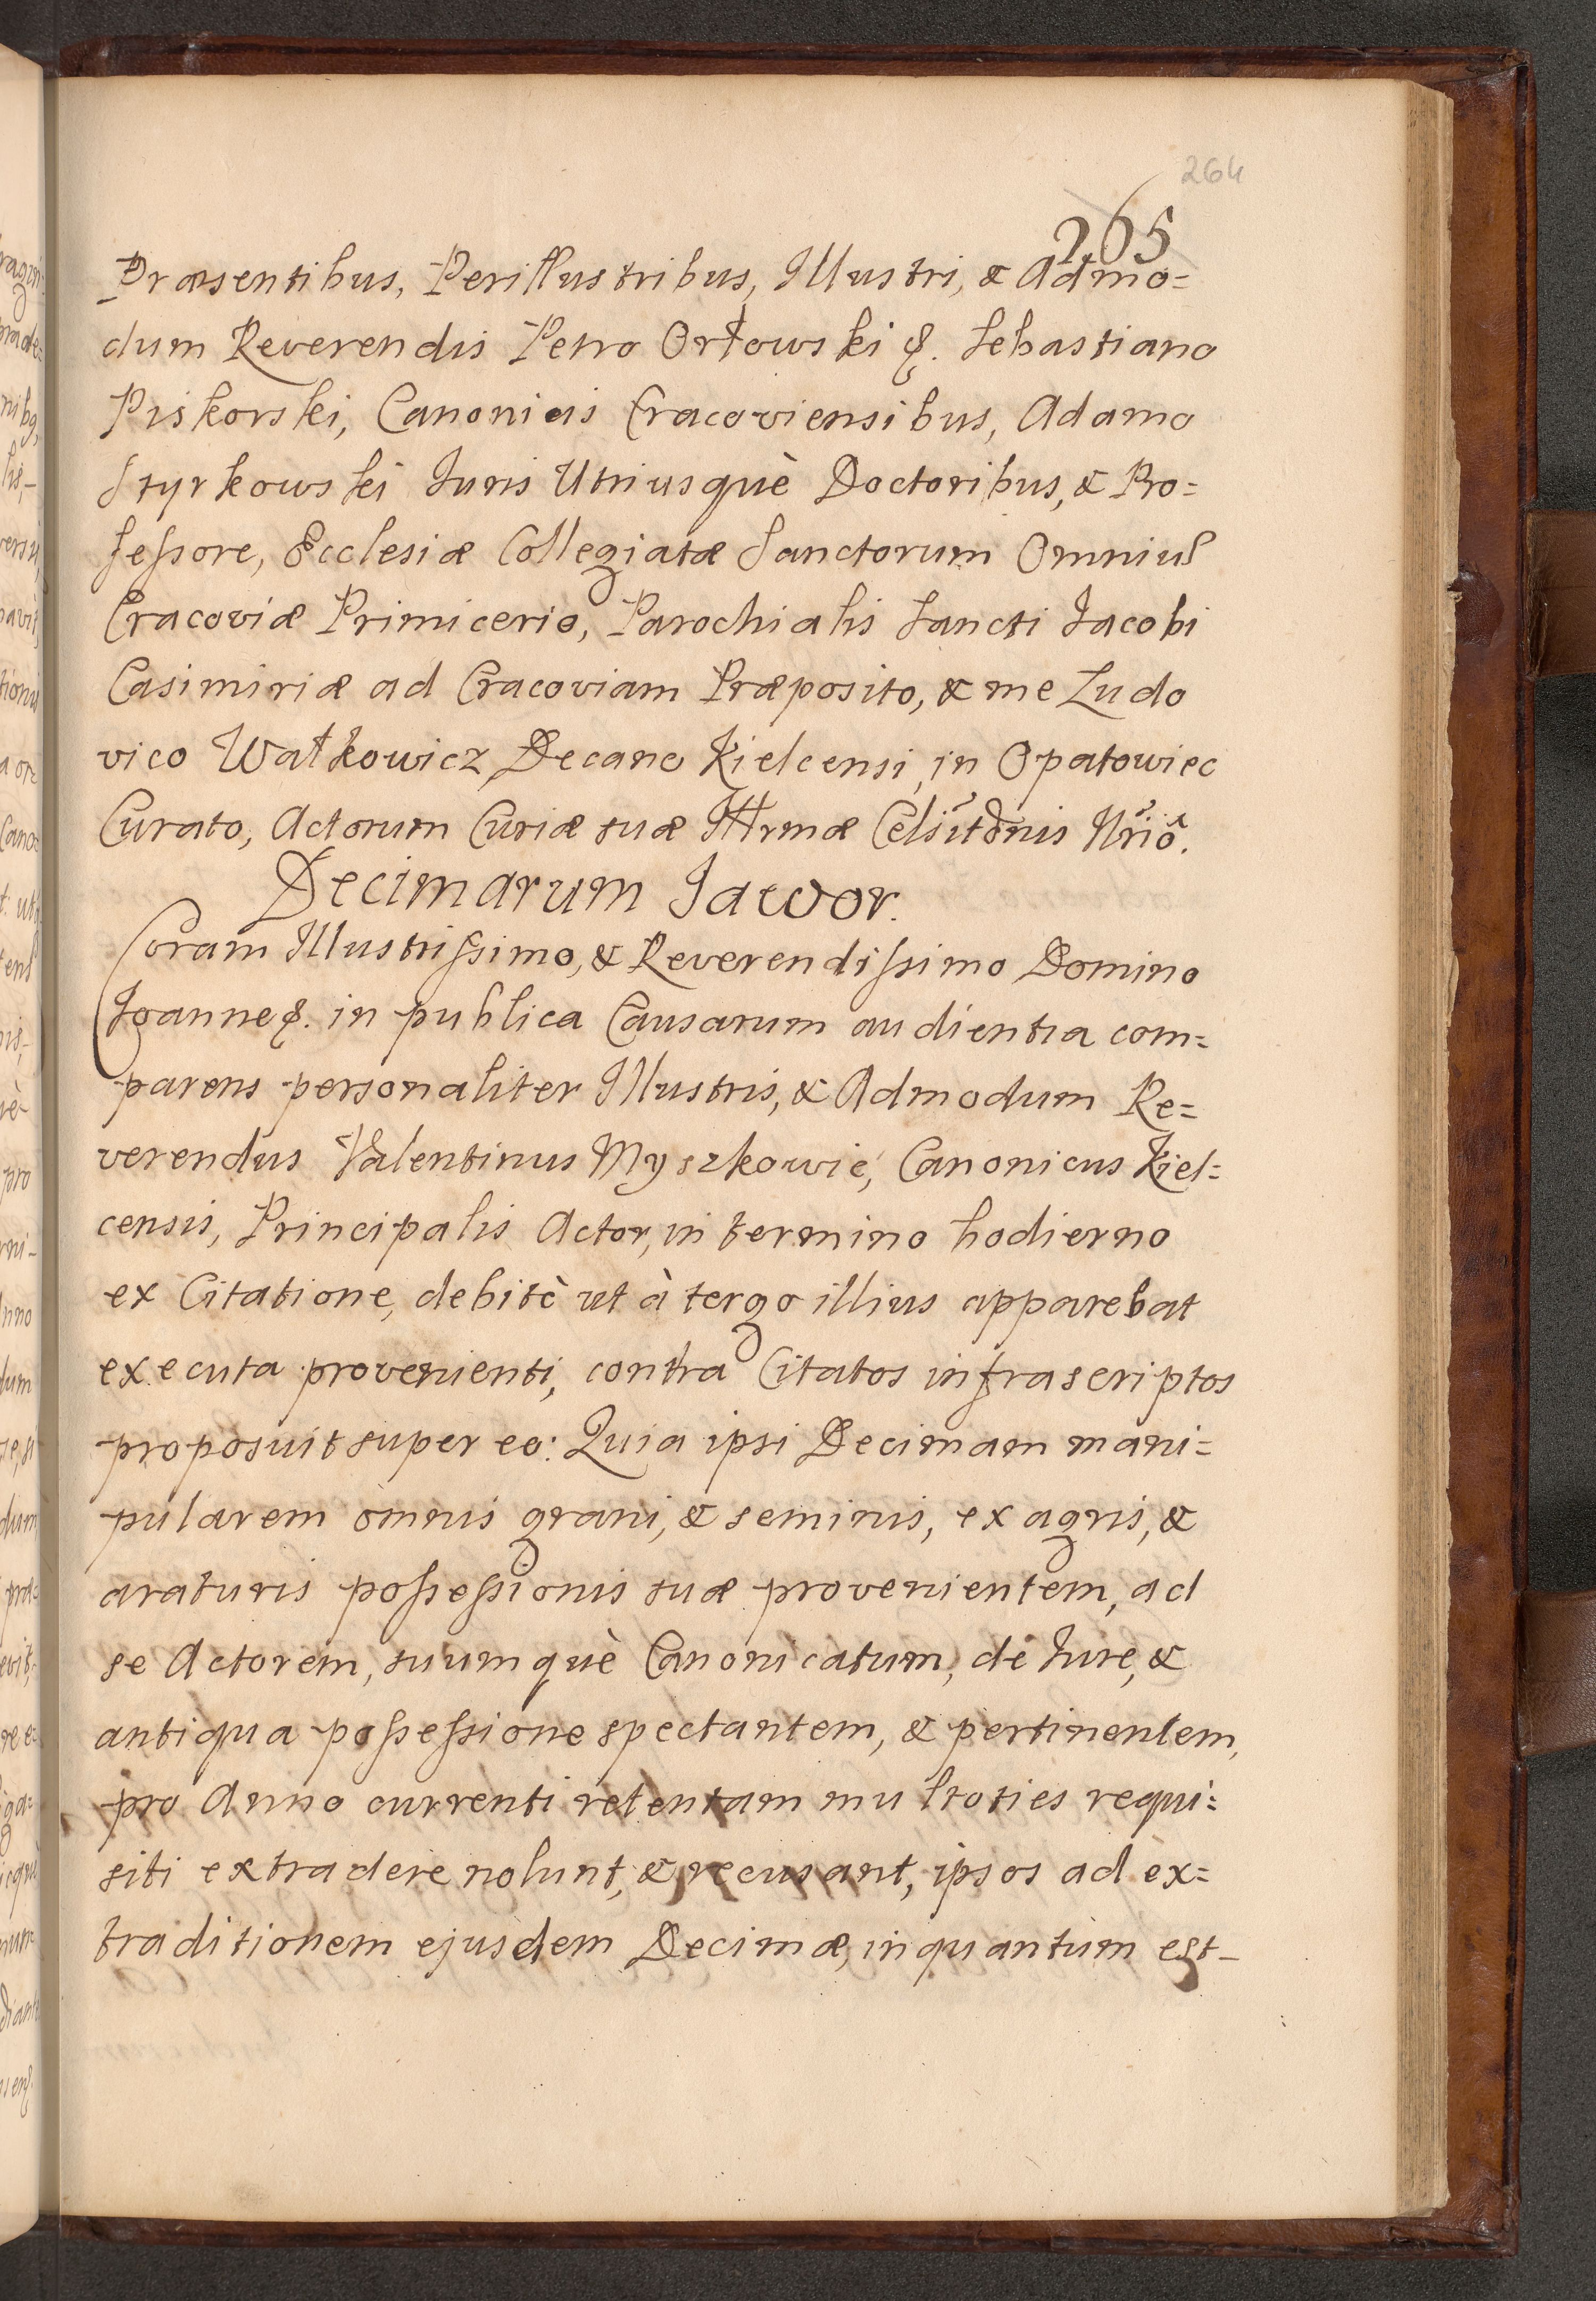 264
265
Præsentibus, Perillustribus, Illustri, & Admo=
dum Reverendis Petro Orłowski &. Sebastiano
Piskorski, Canonicis Cracoviensibus, Adamo
Styrkowski Juris Utriusquè Doctoribus, & Pro=
fessore, Ecclesiæ Collegiatæ Sanctorum Omniū
Cracoviæ Primicerio, Parochialis Sancti Jacobi
Casimiriæ ad Cracoviam Præposito, & me Ludo
vico Wałkowicz Decano Kielcensi, in Opatowiec
Curato, Actorum Curiæ suæ Illrmæ Celsitdnis Nriô.
Decimarum Jawor.
Coram Illustrissimo, & Reverendissimo Domino
Joanne &. in publica Causarum audientia com=
parens personaliter Illustris, & Admodum Re=
verendus Valentinus Myszkowic, Canonicus Kiel=
censis, Principalis Actor, in termino hodierno
ex Citatione, debitè ut à tergo illius apparebat
executa provenienti, contra Citatos infrascriptos
proposuit super eo: Quia ipsi Decimam mani=
pularem omnis grani, & seminis, ex agris, &
araturis possessionis suæ provenientem, ad
se Actorem, suumquè Canonicatum, de Jure, &
antiqua possessione spectantem, & pertinentem,
pro Anno currenti retentam multoties requi=
siti extradere nolunt, & recusant, ipsos ad ex=
traditionem ejusdem Decimæ, inquantum est_